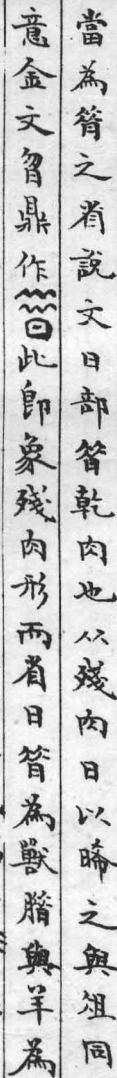 當為䇢之省說文日部䇢乾肉也从殘肉日以晞之與俎同
意金文曶鼎作此即象殘肉形而省日䇢為獸腊與羊為